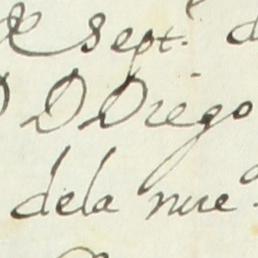 Sept.
D Diego
dela nue